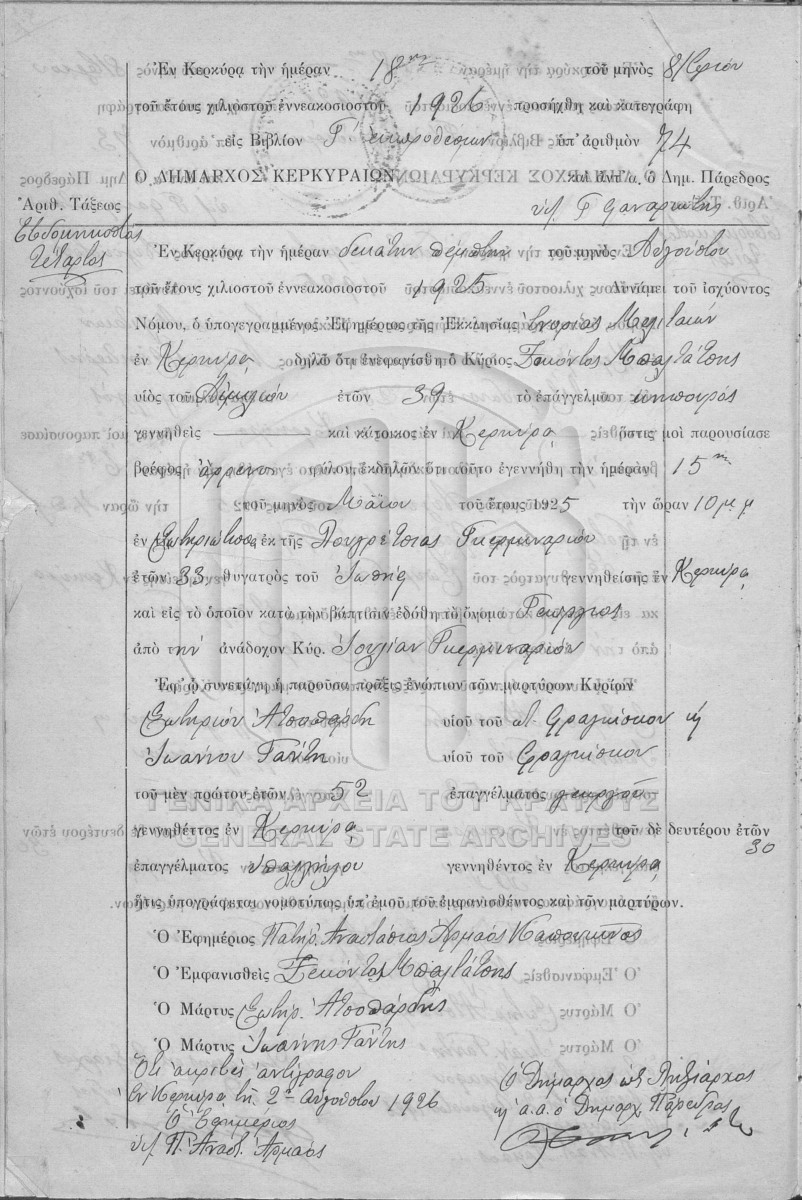 Ἐν Κερκύρᾳ τὴν ἡμέραν 18ην τοῦ μηνὸς 8/βρίου
τοῦ ἔτους χιλιοστοῦ ἐννεακοσιοστοῦ 1926 προσήχθη καὶ κατεγράφη
εἰς Βιβλίον Γ΄ ἐκπροθέσμων ὑπ' ἀριθμὸν 74
Ο ΔΗΜΑΡΧΟΣ ΚΕΡΚΥΡΑΙΩΝ καὶ ἀντ' α. ὁ Δημ. Πάρεδρος
Ἀριθ. Τάξεως
Ἑβδομηκοστὸς
τέταρτος
Ἐν Κερκύρᾳ τὴν ἡμέραν δεκάτην πέμπτην τοῦ μηνὸς Αὐγούστου
τοῦ ἔτους χιλιοστοῦ ἐννεακοσιοστοῦ 1925 Δυνάμει τοῦ ἰσχύοντος
Νόμου, ὁ ὑπογεγραμμένος Ἐφημέριος τῆς Ἐκκλησίας Ἐνορίας
ἐν Κερκύρᾳ δηλῶ ὅτι ἐνεφανίσθη ὁ Κύριος Σεκόντος Μπαλτάτσης
υἱὸς τοῦ ἐτῶν 39 τὸ ἐπάγγελμα κηπουρὸς
γεννηθεὶς καὶ κάτοικος ἐν Κερκύρᾳ ὅστις μοὶ παρουσίασε
βρέφος ἄρρενος φύλου, ἐκδηλῶν ὅτι τοῦτο ἐγεννήθη τὴν ἡμέραν 15ην
τοῦ μηνὸς Μαΐου τοῦ ἔτους 1925 τὴν ὥραν 10 μ.μ
ἐν Σωτηριώτισσα ἐκ τῆς Λουκρέτσιας Γκερμιναριοῦ
ἐτῶν 33 θυγατρὸς τοῦ Ἰωσὴφ γεννηθείσης ἐν Κερκύρᾳ
καὶ εἰς τὸ ὁποῖον κατὰ τὴν βάπτισιν ἐδόθη τὸ ὄνομα Γεώργιος
ἀπὸ τὴν ἀνάδοχον Κύρ. Ἰουλίαν Γκερμιναριοῦ
Ἐφ' ᾧ συνετάγη ἡ παροῦσα πρᾶξις ἐνώπιον τῶν μαρτύρων Κυρίων
Σωτηρίου Ἀτσοπάρδη υἱοῦ τοῦ Φραγκίσκου ἢ
Ἰωάννου Γαύτη υἱοῦ τοῦ Φραγκίσκου
τοῦ μὲν πρώτου ἐτῶν 52 ἐπαγγέλματος γεωργοῦ
γεννηθέττος ἐν Κερκύρᾳ τοῦ δὲ δευτέρου ἐτῶν 30
ἐπαγγέλματος ὑπαλλήλου γεννηθέντος ἐν Κερκύρᾳ
ἥτις ὑπογράφεται νομοτύπως ὑπ' ἐμοῦ τοῦ ἐμφανισθέντος καὶ τῶν μαρτύρων.
Ὁ Ἐφημέριος Πατὴρ Ἀναστάσιος Ἀρμαὸς Καπουκῖνος
Ὁ Ἐμφανισθεὶς Σεκόντος Μπαλτάτσης
Ὁ Μάρτυς Σωτήρ. Ἀτσοπάρδης
Ὁ Μάρτυς Ἰωάννης Γαύτης
Ὅτι ἀκριβὲς ἀντίγραφον
Ἐν Κερκύρᾳ τῇ 2ᾳ Αὐγούστου 1926
Ὁ Ἐφημέριος
ὑπ. Π. Ἀναστ. Ἀρμαὸς
Ὁ Δήμαρχος ὡς Ληξίαρχος
ἢ ἀ.α. ὁ Δημαρχ. Πάρεδρος
ΓΕΝΙΚΑ ΑΡΧΕΙΑ ΤΟΥ ΚΡΑΤΟΥΣ
GENERAL STATE ARCHIVES